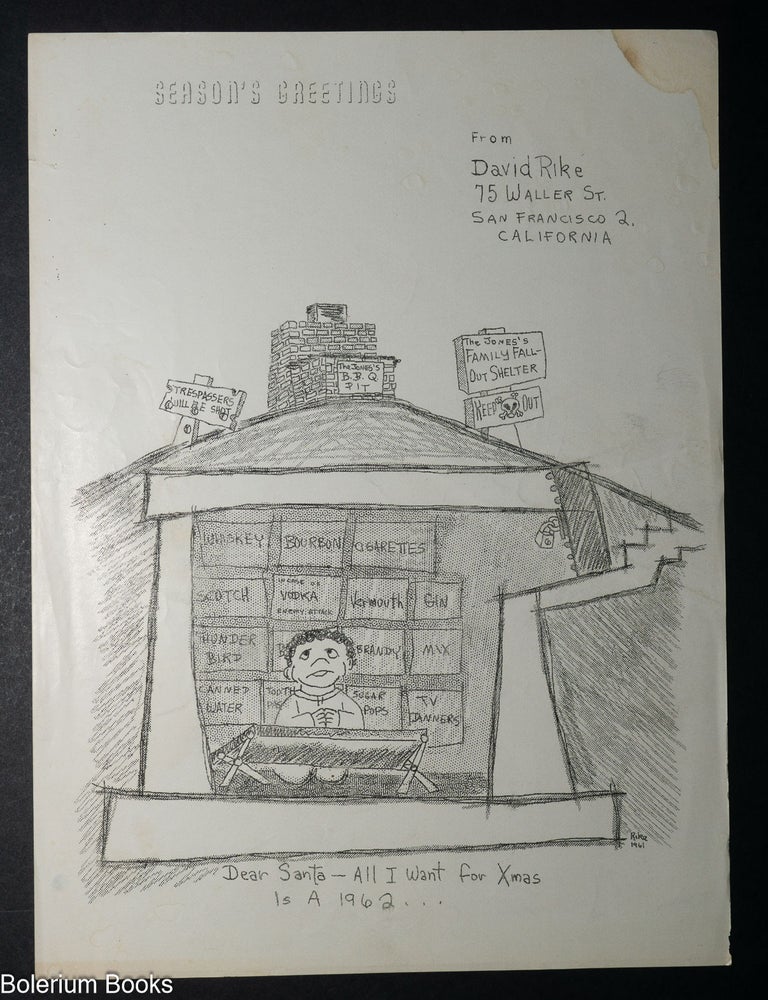 SEASON'S GREETINGS
From
David Rike
75 WALLER ST.
SAN FRANCISCO 2,
CALIFORNIA
The JONES'S
B.B.Q
PIT
The JONES'S
FAMILY FALL-
OUT SHELTER
KEEP OUT
TRESPASSERS
WILL BE SHOT
WHISKEY
BOURBON
CIGARETTES
SCOTCH
IN CASE OF
VODKA
ENEMY ATTACK
Vermouth
GIN
THUNDER
BIRD
BRANDY
MIX
CANNED
WATER
TOOTH
SUGAR
POPS
TV
DANNERS
Rike
1961
Dear Santa — All I Want for Xmas
Is A 1962...
Bolerium Books